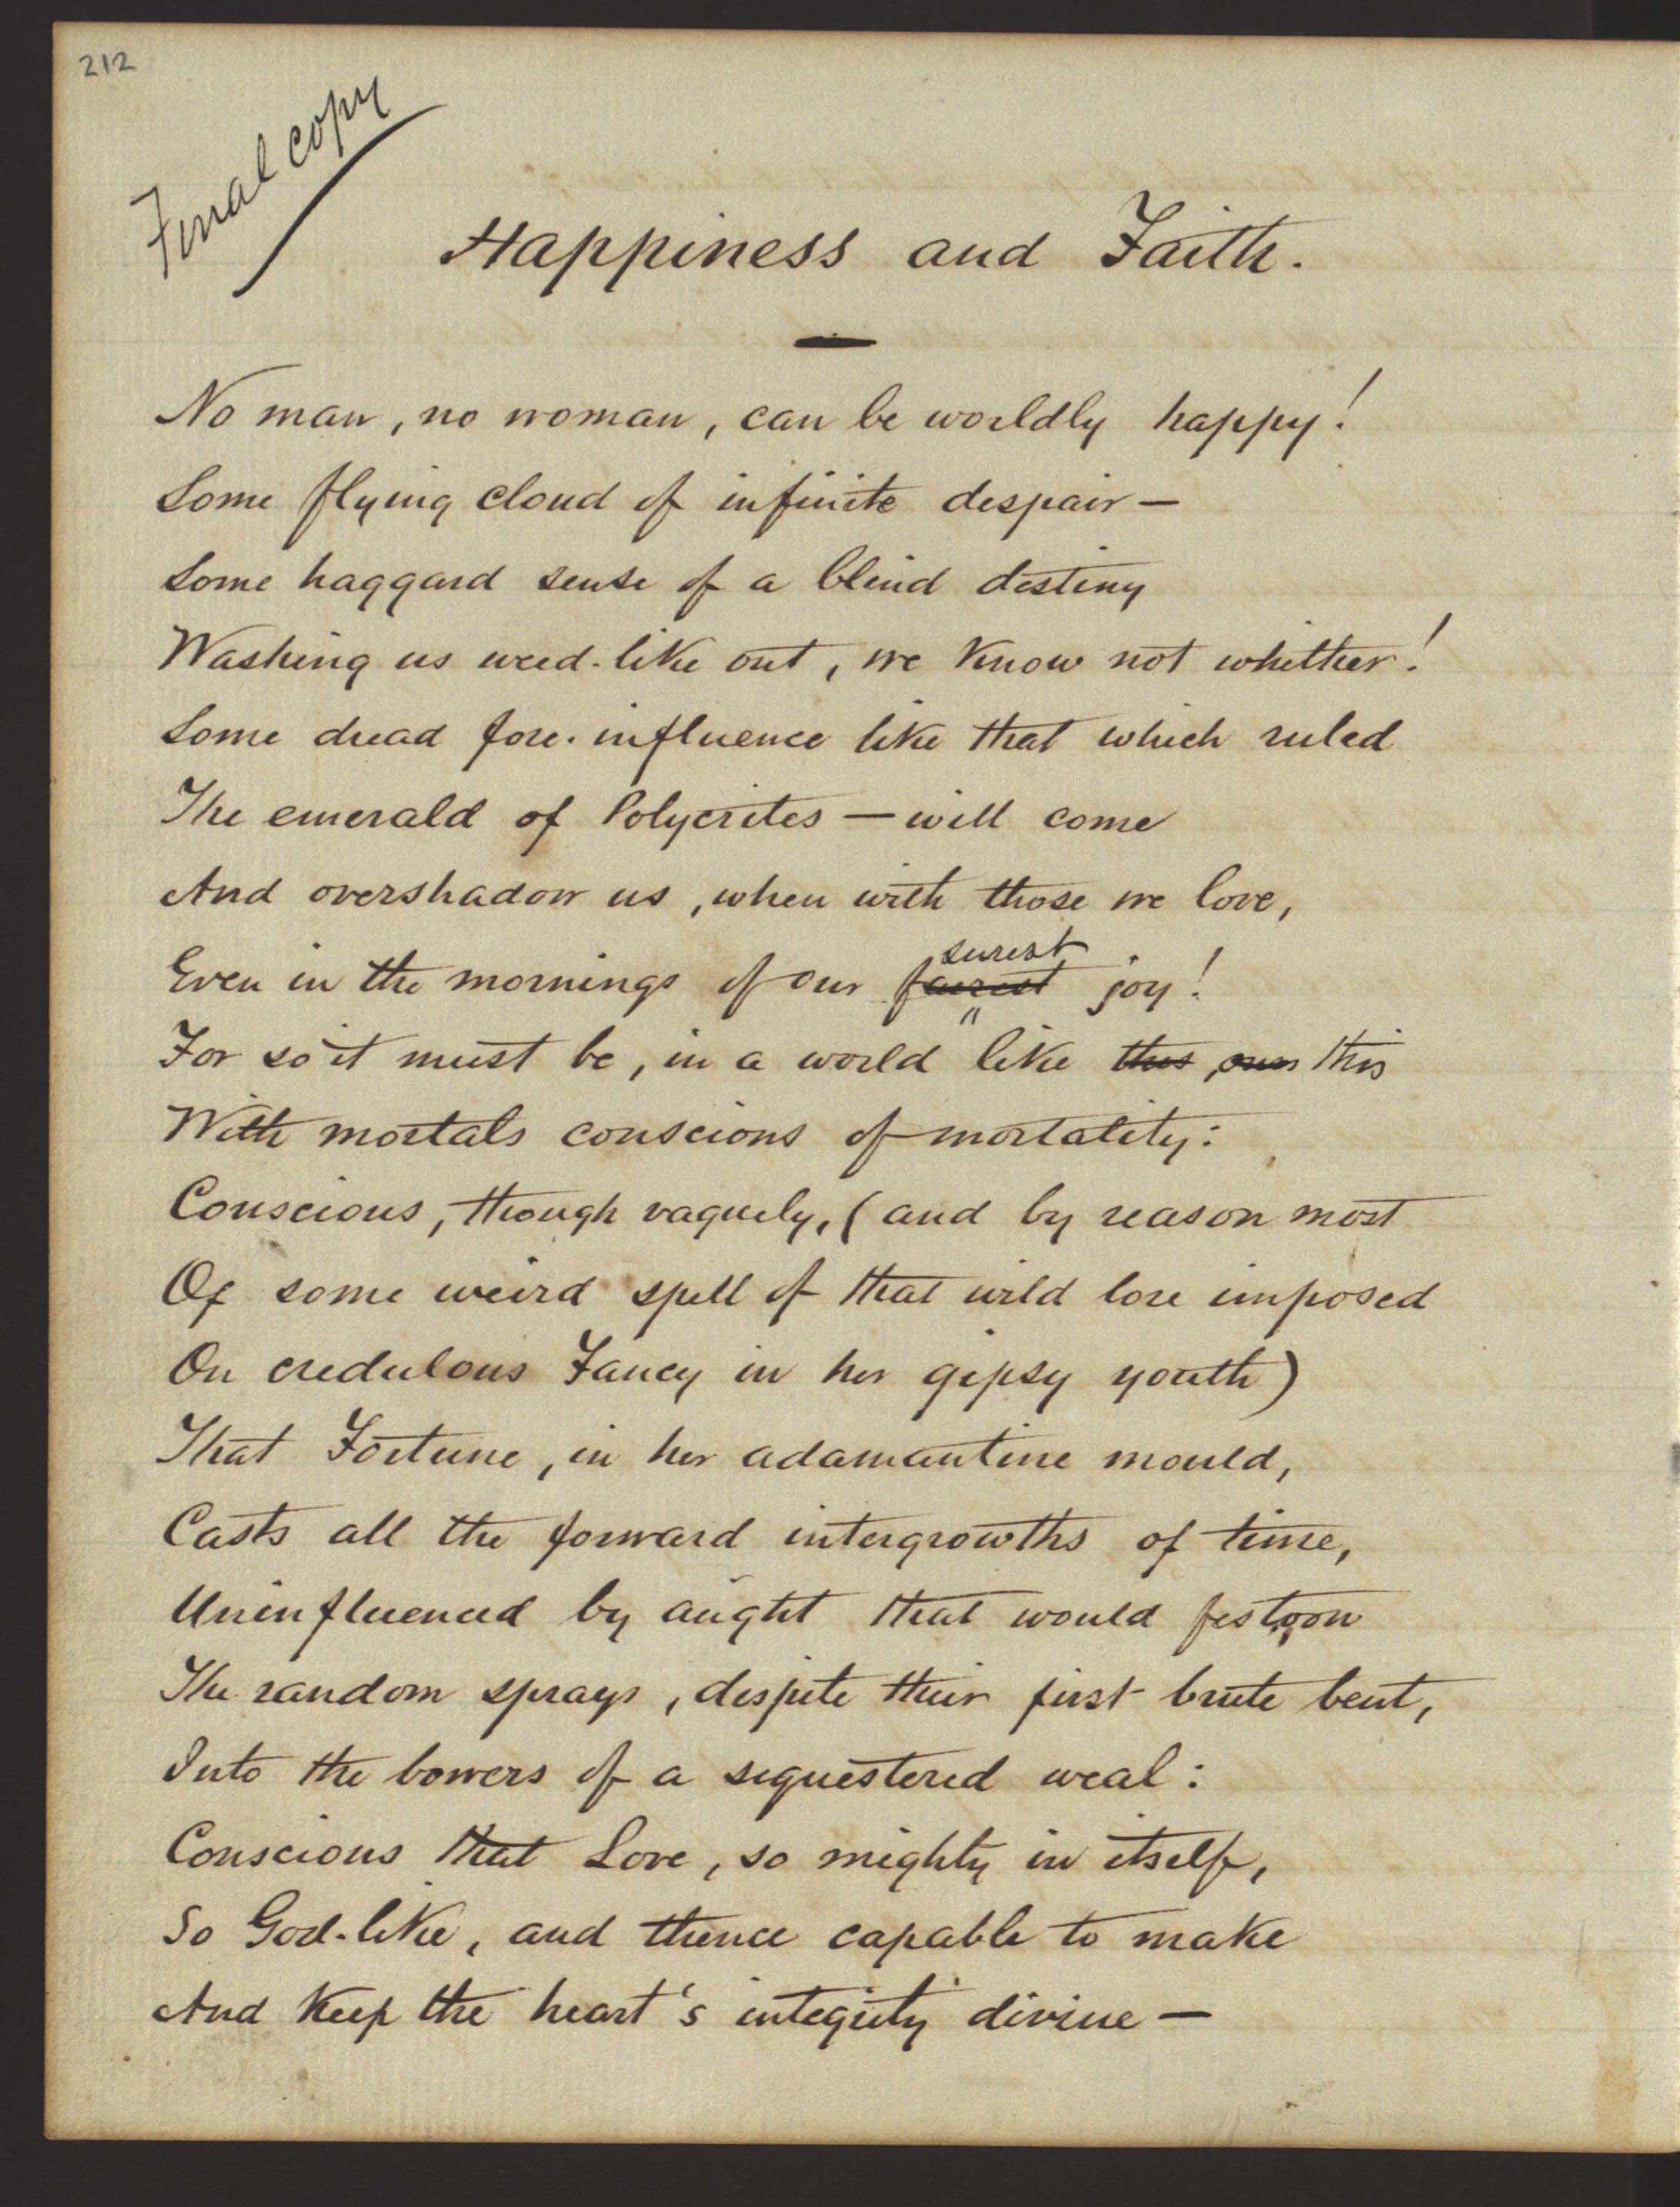 212
Final copy
Happiness and Faith.
No man, no woman, can be worldly happy!
Some flying cloud of infinite despair —
Some haggard sense of a blind destiny
Washing us weed-like out, we know not whither!
Some dread fore-influence like that which ruled
The emerald of Polycrites — will come
And overshadow us, when with those we love,
surest
Even in the mornings of our fairest joy!
For so it must be, in a world like this, ours this
With mortals conscious of mortality:
Conscious, though vaguely, (and by reason most
Of some weird spell of that wild lore imposed
On credulous Fancy in her gipsy youth)
That Fortune, in her adamantine mould,
Casts all the forward intergrowths of time,
Uninfluenced by aught that would festoon
The random sprays, despite their first brute bent,
Into the bowers of a sequestered weal:
Conscious that Love, so mighty in itself,
So God-like, and thence capable to make
And keep the heart's integrity divine —